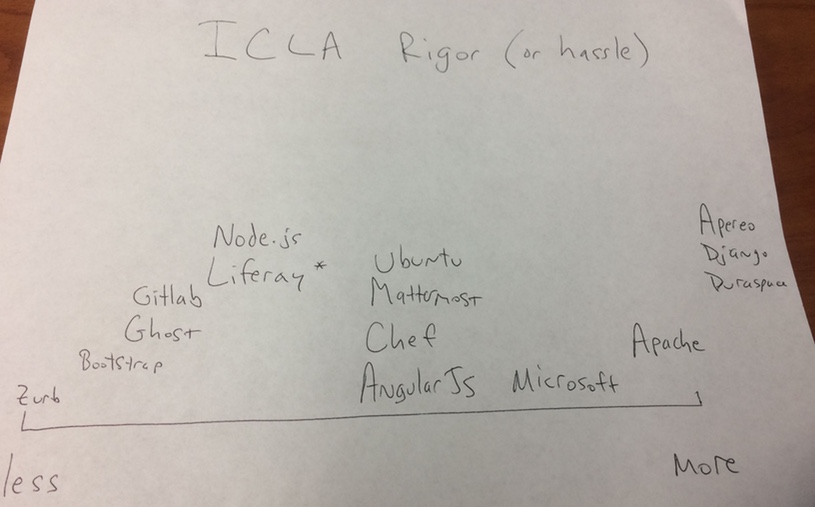 ICLA Rigor (or hassle)
Apereo
Node.js
Django
Liferay *
Ubuntu
Duraspace
Gitlab
Mattermost
Ghost
Chef
Apache
Bootstrap
Zurb
AngularJS
Microsoft
less
More